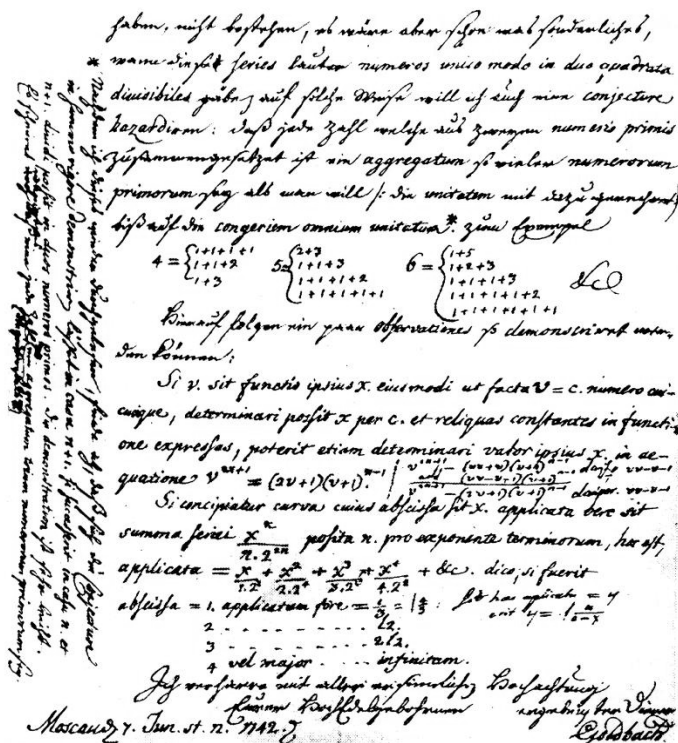 haben, nicht bestehen, es wäre aber schon was sonderliches,
wann diese series lauter numeros unico modo in duo quadrata
divisibiles gäbe, auf solche Weise will ich auch eine conjecture
hazardiren: daß jede Zahl welche aus zweyen numeris primis
zusammengesetzet ist ein aggregatum so vieler numerorum
primorum sey als man will /: die unitatem mit dazu gerechnet
biß auf die congeriem omnium unitatum* zum Exempel
4 = { 1+1+1+1 5 = { 2+3 6 = { 1+5
1+1+2 1+1+3 1+2+3
1+3 1+1+1+2 1+1+1+3
1+1+1+1+1 1+1+1+1+2
1+1+1+1+1+1 &c
Hierauf folgen ein paar observationes so demonstriret wer-
den können:
Si v. sit functio ipsius x. eiusmodi ut facta v = c. numero cui-
cunque, determinari possit x per c. et reliquas constantes in functi-
one expressas, poterit etiam determinari valor ipsius x. in ae-
quatione v^{2n+1} = (2v+1)(v+1)^{n-1}
Si concipiatur curva cuius abscissa sit x. applicata vero sit
summa seriei x^n/(n.2^{2n}) posita n. pro exponente terminorum, hoc est,
applicata = x/(1.2^2) + x^2/(2.2^4) + x^3/(3.2^6) + x^4/(4.2^8) + &c. dico, si fuerit
abscissa = 1. applicatam fore = l 4/3:
2 . . . . . . . . l2.
3 . . . . . . . . 2l2.
4 vel major . . . . infinitam.
Ich verharre mit aller ersinnlichen Hochachtung
Eurer Hochedelgebohrnen ergebenster Diener
Moscau 7. Jun. st. n. 1742. Goldbach.
* Nachdem ich dieses wieder durchgelesen, finde ich, daß sich die Conjecture
in summo rigore demonstriren läßet in casu n+1. si successerit in casu n. et
n+1. dividi possit in duos numeros primos. Die demonstration ist sehr leicht.
Es scheinet wenigstens, daß eine jede Zahl ein aggregatum trium numerorum primorum sey.